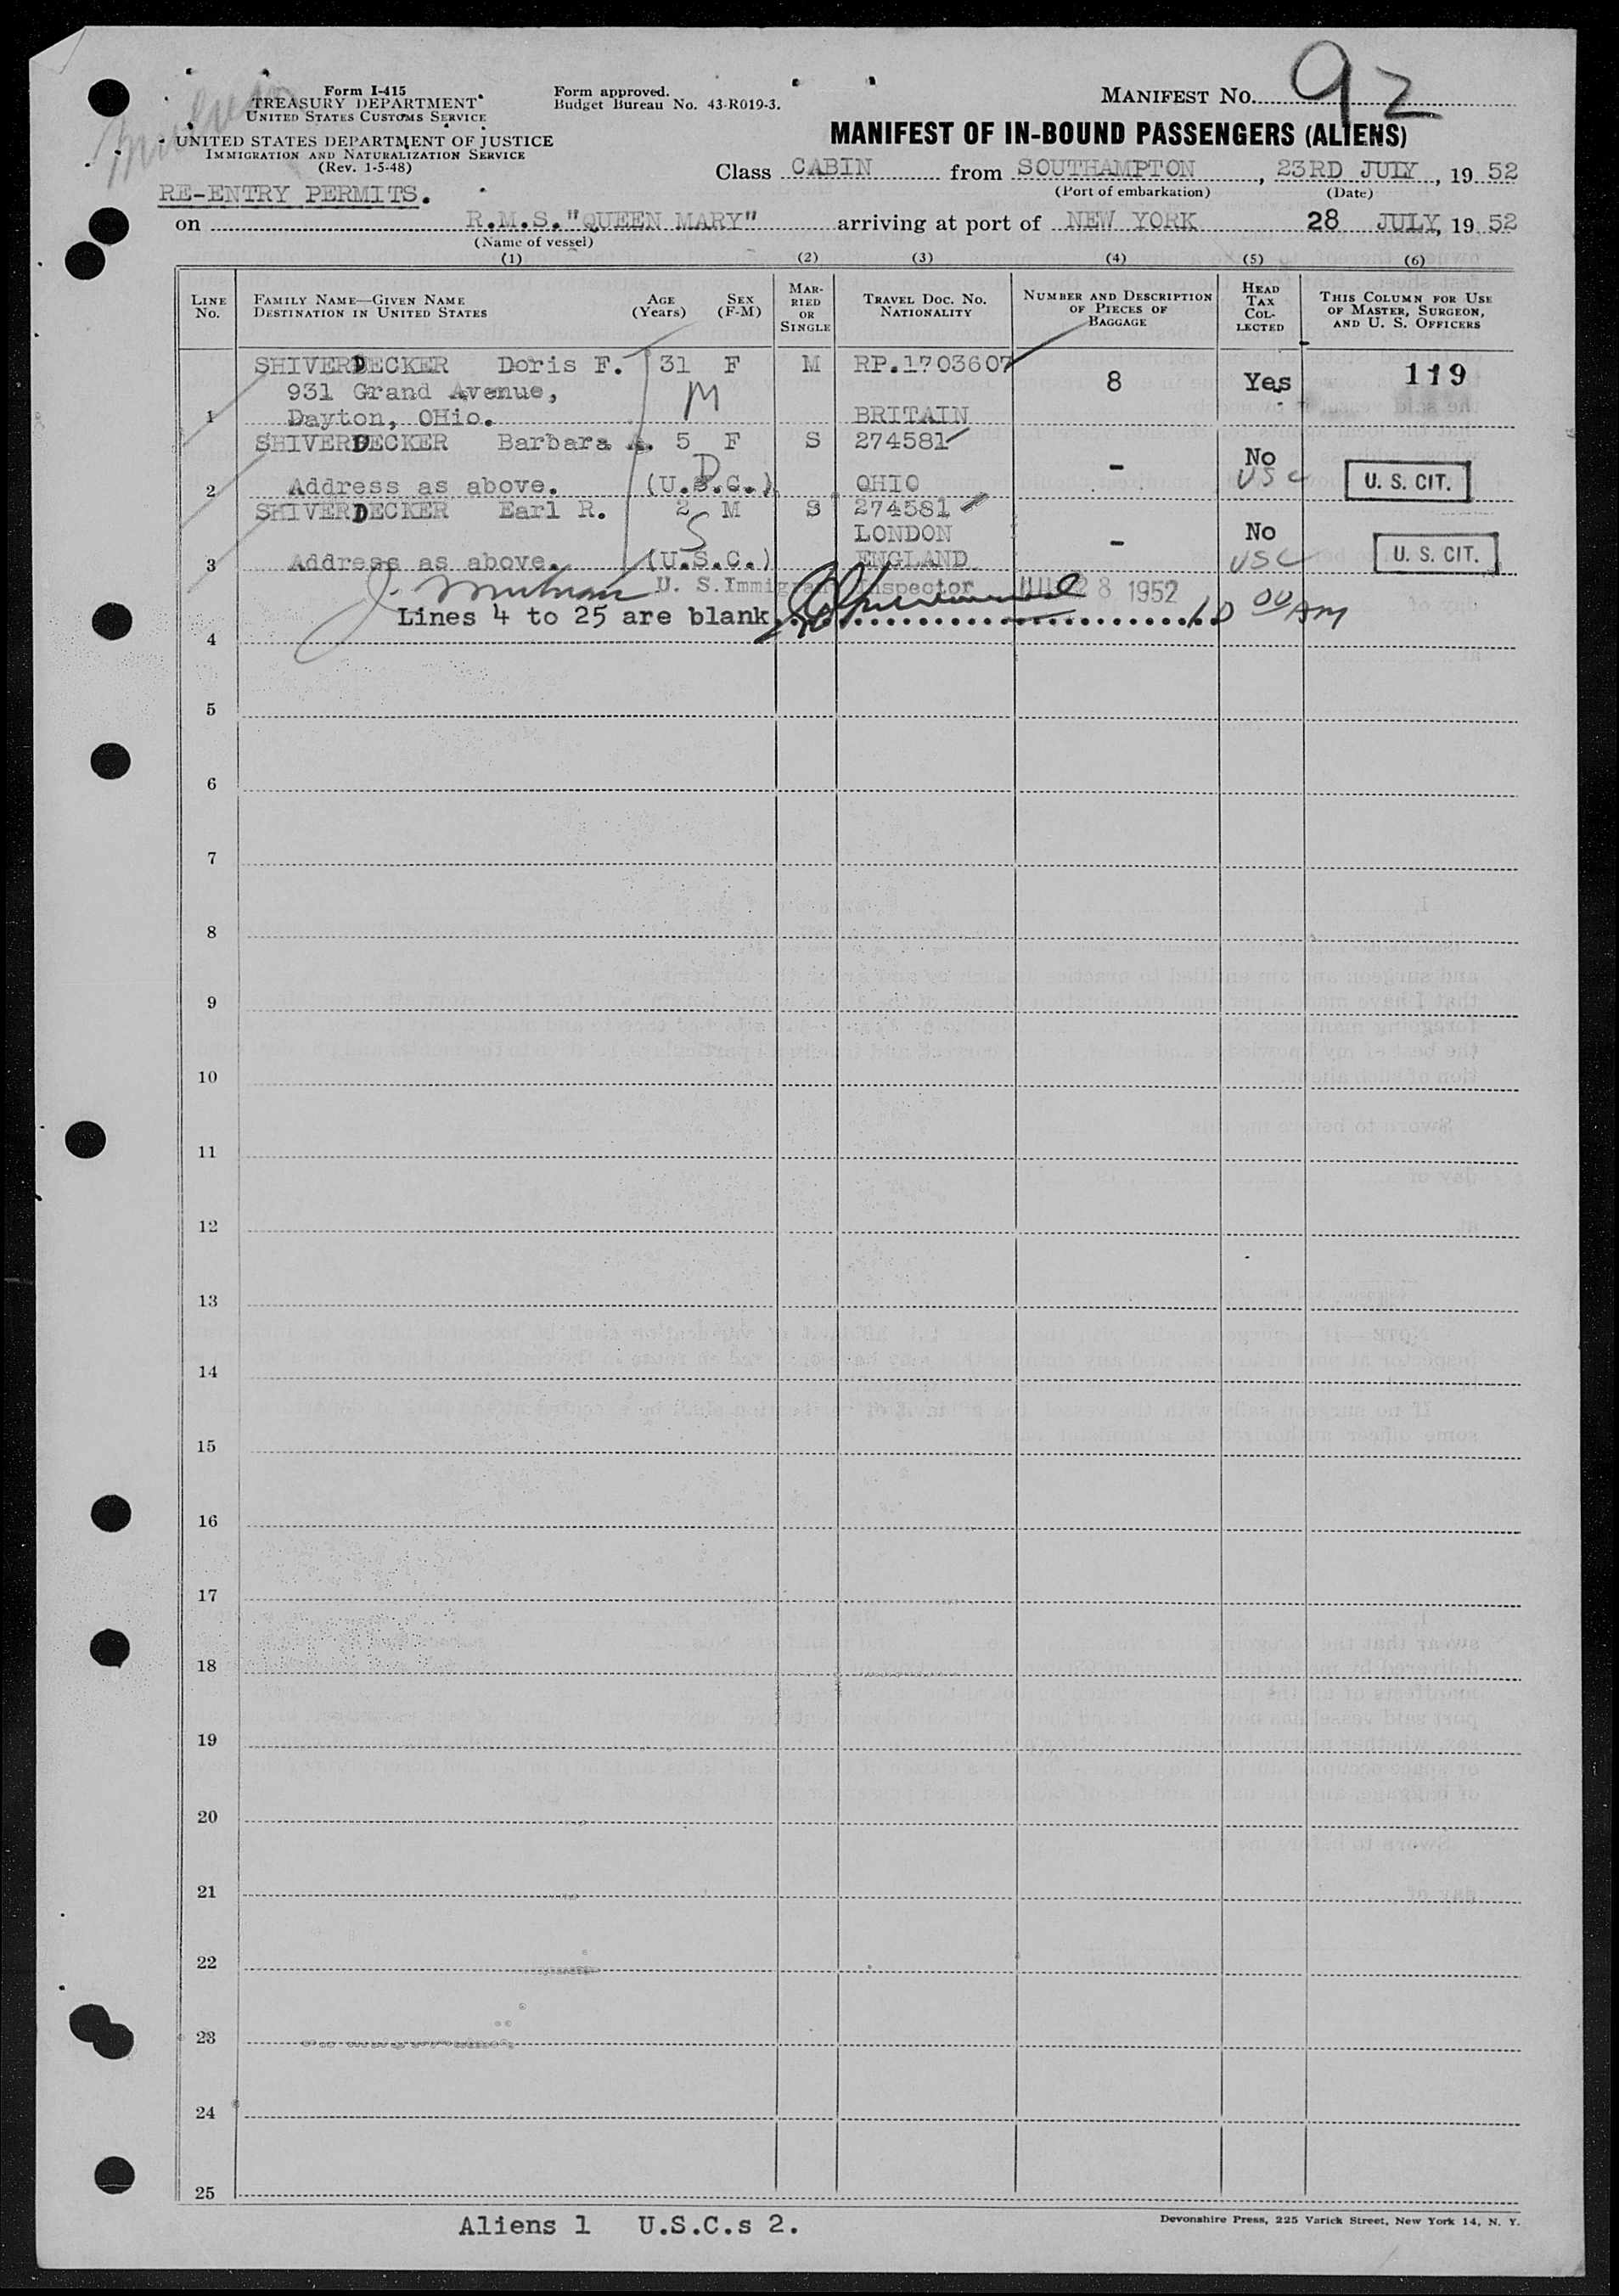 Form I-415
TREASURY DEPARTMENT
UNITED STATES CUSTOMS SERVICE
UNITED STATES DEPARTMENT OF JUSTICE
IMMIGRATION AND NATURALIZATION SERVICE
(Rev. 1-5-48)
Form approved.
Budget Bureau No. 43-R019-3.
MANIFEST NO. 92
MANIFEST OF IN-BOUND PASSENGERS (ALIENS)
Class CABIN from SOUTHAMPTON, 23RD JULY, 19 52
(Port of embarkation) (Date)
RE-ENTRY PERMITS.
on R.M.S."QUEEN MARY" arriving at port of NEW YORK 28 JULY, 19 52
(Name of vessel)
(1) (2) (3) (4) (5) (6)
LINE No.
FAMILY NAME—GIVEN NAME
DESTINATION IN UNITED STATES
AGE (Years)
SEX (F-M)
MARRIED OR SINGLE
TRAVEL DOC. NO. NATIONALITY
NUMBER AND DESCRIPTION OF PIECES OF BAGGAGE
HEAD TAX COLLECTED
THIS COLUMN FOR USE OF MASTER, SURGEON, AND U. S. OFFICERS
SHIVERDECKER Doris F. 31 F M RP.1703607 8 Yes 119
931 Grand Avenue, M
1 Dayton, OHio. BRITAIN
SHIVERDECKER Barbara A. 5 F S 274581 - No
D USC U. S. CIT.
2 Address as above. (U.S.C.) OHIO
SHIVERDECKER Earl R. 2 M S 274581 - No
S LONDON
3 Address as above. (U.S.C.) ENGLAND USC U. S. CIT.
U. S. Immigrant Inspector JUL 28 1952
Lines 4 to 25 are blank 10 00 AM
4
5
6
7
8
9
10
11
12
13
14
15
16
17
18
19
20
21
22
23
24
25
Aliens 1 U.S.C.s 2.
Devonshire Press, 225 Varick Street, New York 14, N. Y.